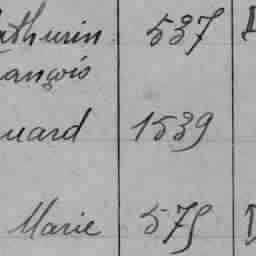 athurin 537
ançois
uard 1539
Marie 575